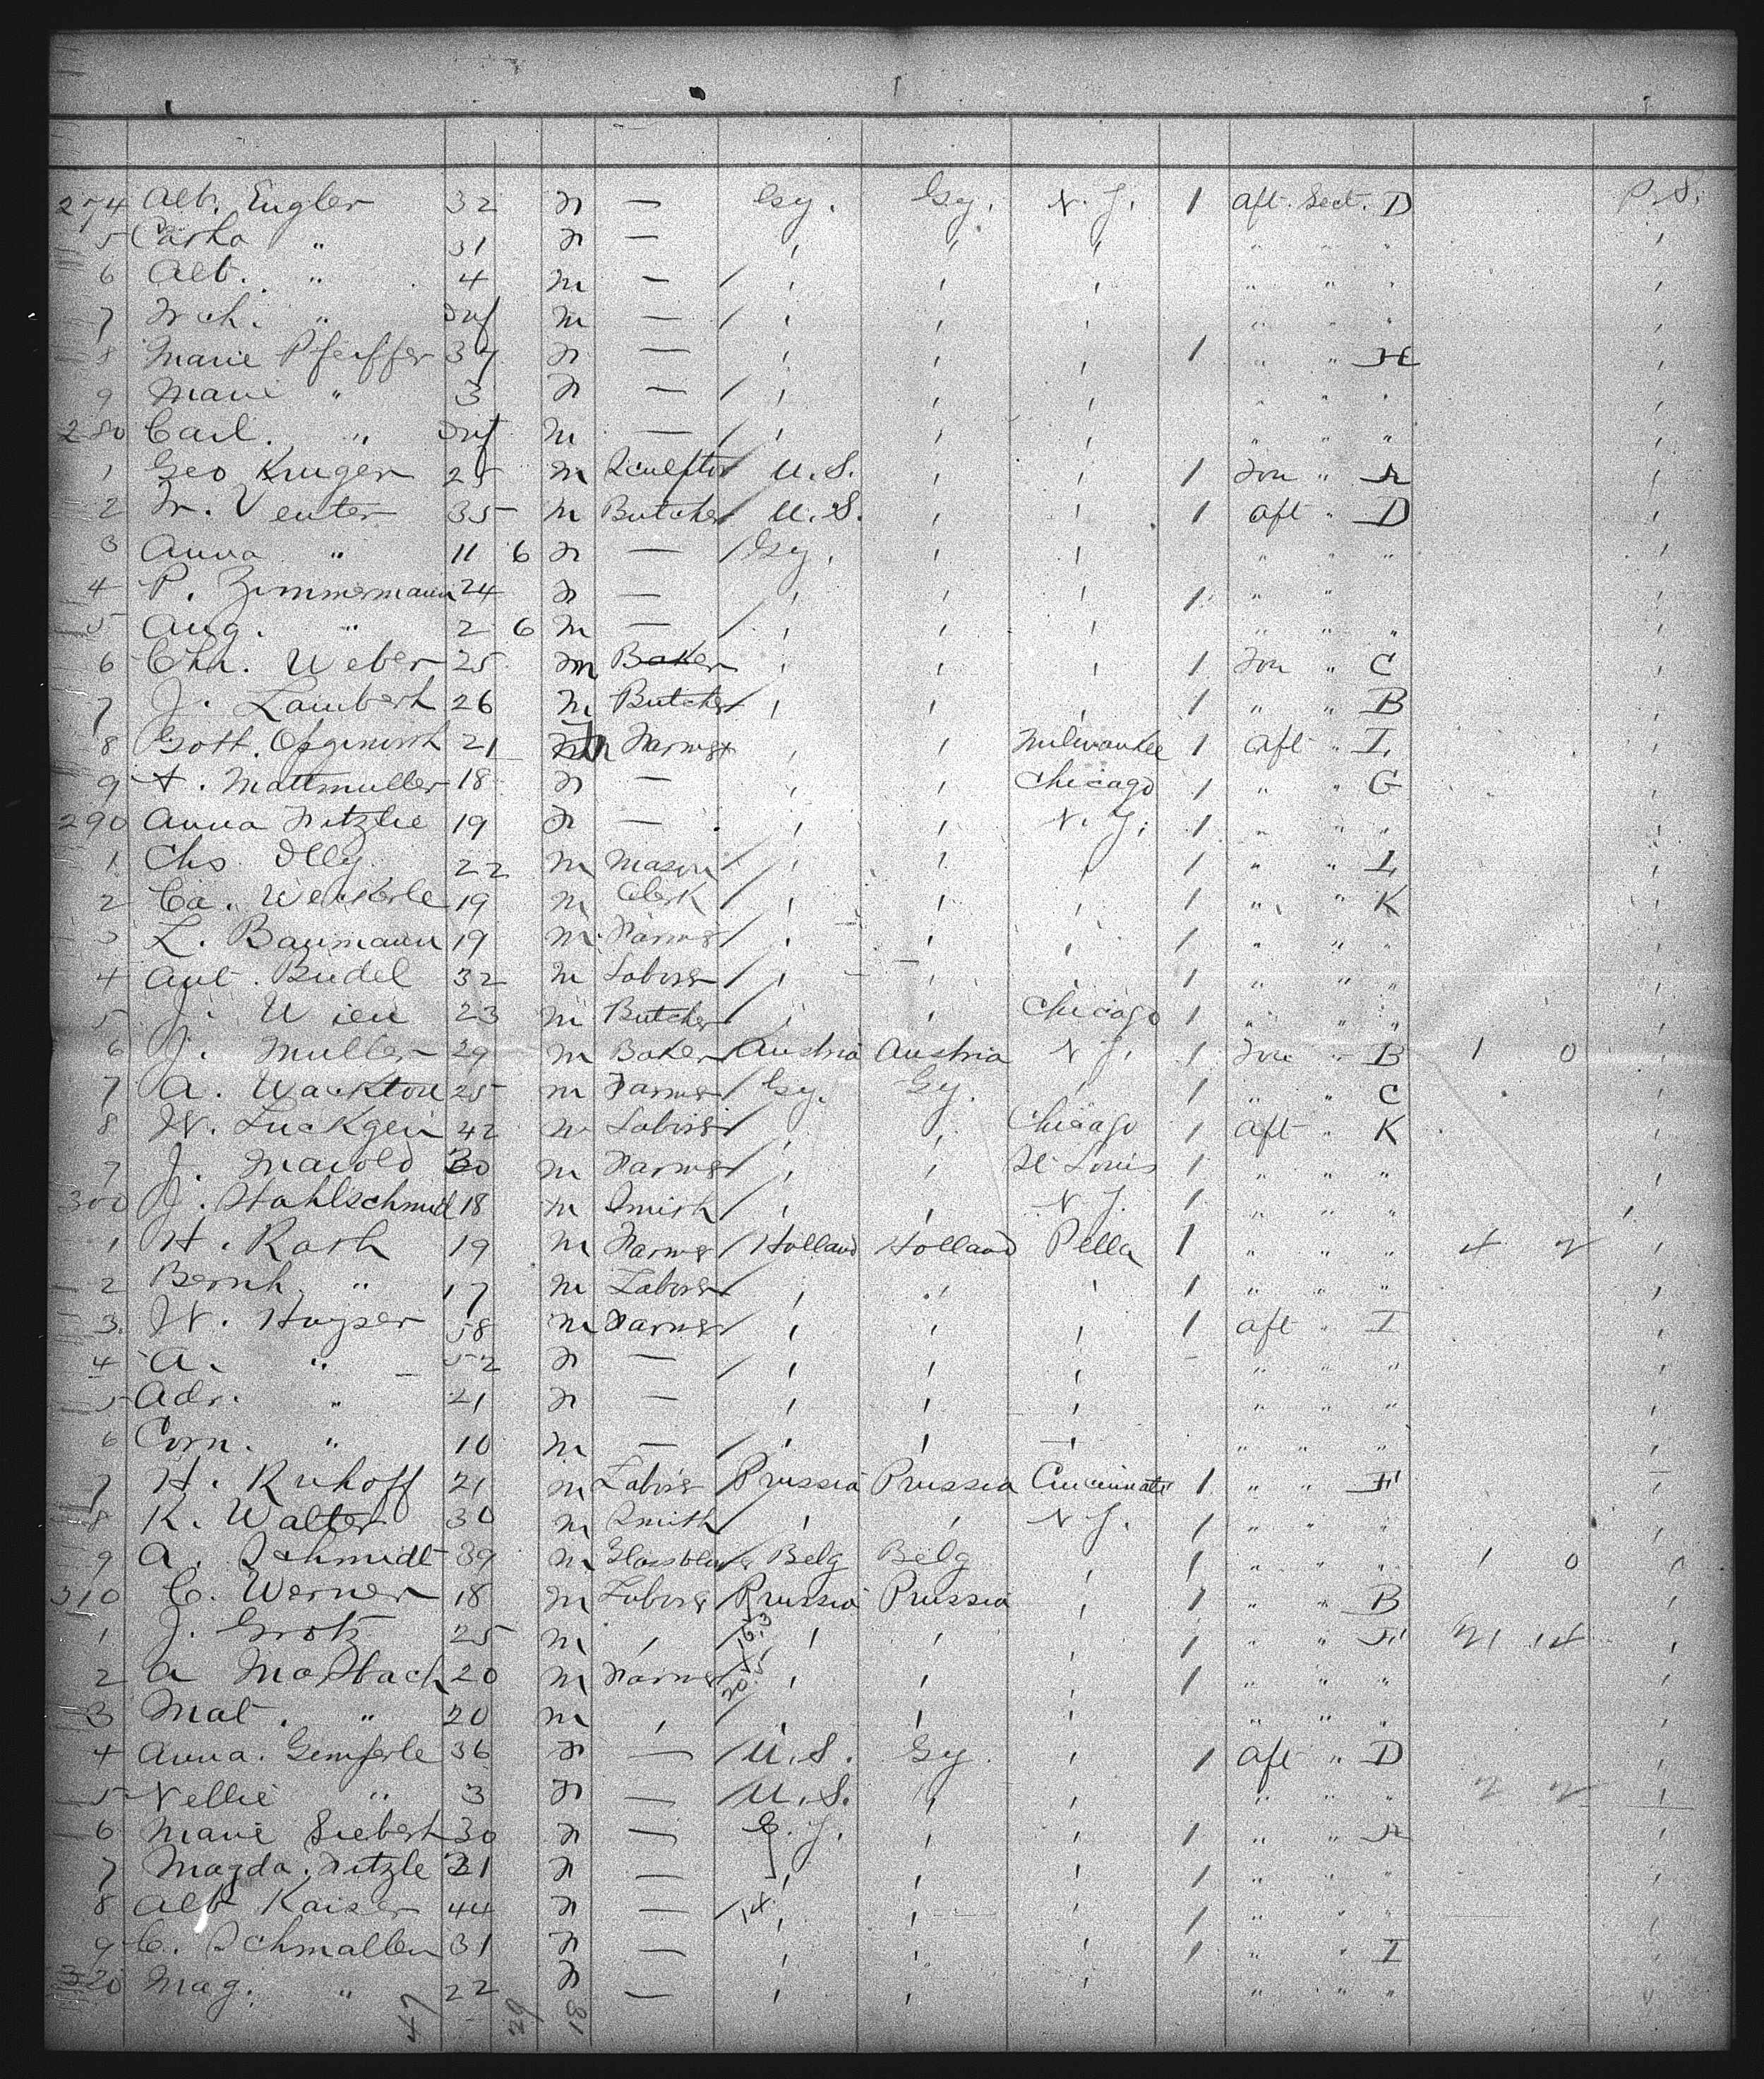 274 Alb. Engler 32 n — Gy. Gy. N. Y. 1 Aft. Sect. D P.S.
5 " 31 n — ' ' ' " " " '
6 Alb. " 4 m — / ' ' ' " " " '
7 " Inf m — / ' ' ' " " " '
8 Marie Pfeiffer 37 n — ' ' ' 1 " " H '
9 Marie " 3 n — / ' ' ' " " " '
280 Carl. " Inf m — / ' ' ' " " " '
1 Geo Kruger 25 m Sculptor / U. S. ' ' 1 For " A '
2 Fr. Venter 35 m Butcher / U. S. ' ' 1 Aft " D '
3 Anna " 11 6 n — / Gy. ' ' " " " '
4 P. Zimmermann 24 n — ' ' ' 1 " " '
5 Aug. " 2 6 m — / ' ' ' " " " '
6 Chr. Weber 25 m Baker ' ' ' 1 For " C '
7 J. Lambert 26 m Butcher / ' ' ' 1 " " B '
8 Gott. 21 Farmer ' ' Milwaukee 1 Aft " I '
9 A. Mattmuller 18 n — ' ' Chicago 1 " " G '
290 Anna Fitzlie 19 n — ' ' N. Y. 1 " " " '
1 Chs Illy 22 m Mason / ' ' ' 1 " " L '
2 Ca. Weikerle 19 m Clerk / ' ' ' 1 " " K '
3 L. Baumann 19 m Farmer / ' ' ' 1 " " " '
4 Ant. Budel 32 m Laborer / ' ' ' 1 " " " '
5 J. Wien 23 m Butcher / ' ' Chicago 1 " " " '
6 J. Muller 29 m Baker / Austria Austria N. Y. 1 For " B 1 0 '
7 A. Wackton 25 m Farmer / Gy. Gy. ' 1 " " C '
8 W. Luckgen 42 m Laborer / ' ' Chicago 1 Aft " K '
9 J. Marold 30 m Farmer / ' ' St Louis 1 " " " '
300 J. Stahlschmid 18 m Smith / ' ' N. Y. 1 " " " '
1 H. Rash 19 m Farmer / Holland Holland Pella 1 " " " 4 2 '
2 Bernh. " 17 m Laborer / ' ' ' 1 " " " '
3 W. Huyser 58 m Farmer / ' ' ' 1 Aft " I '
4 A. " 52 n — / ' ' ' " " " '
5 Adr. " 21 n — ' ' ' " " " '
6 Corn. " 10 m — / ' ' ' " " " '
7 H. Ruhoff 21 m Laborer / Prussia Prussia Cincinnati 1 " " F '
8 K. Walter 30 m Smith / ' ' N. Y. 1 " " " '
9 A. Schmidt 39 m Glassblower / Belg Belg ' 1 " " " 1 0 '
310 C. Werner 18 m Laborer Prussia Prussia ' 1 " " B '
1 J. Grotz 25 m ' ' ' ' 1 " " F 21 14 '
2 A 20 m Farmer ' ' ' 1 " " " '
3 Mat. " 20 m ' ' ' ' " " " '
4 Anna. Gemperle 36 n — / U. S. Gy. ' 1 Aft " D '
5 Nellie " 3 n — / U. S. ' ' " " " 2 2 '
6 Marie Siebert 30 n — ' ' 1 " " A '
7 Magda. Fitzle 21 n — ' ' ' 1 " " " '
8 Alb Kaiser 44 n — 14 ' ' ' 1 " " " '
9 C. Schmallen 31 n — ' ' ' 1 " " I '
320 Mag. " 22 n — ' ' ' " " " '
47 29 18